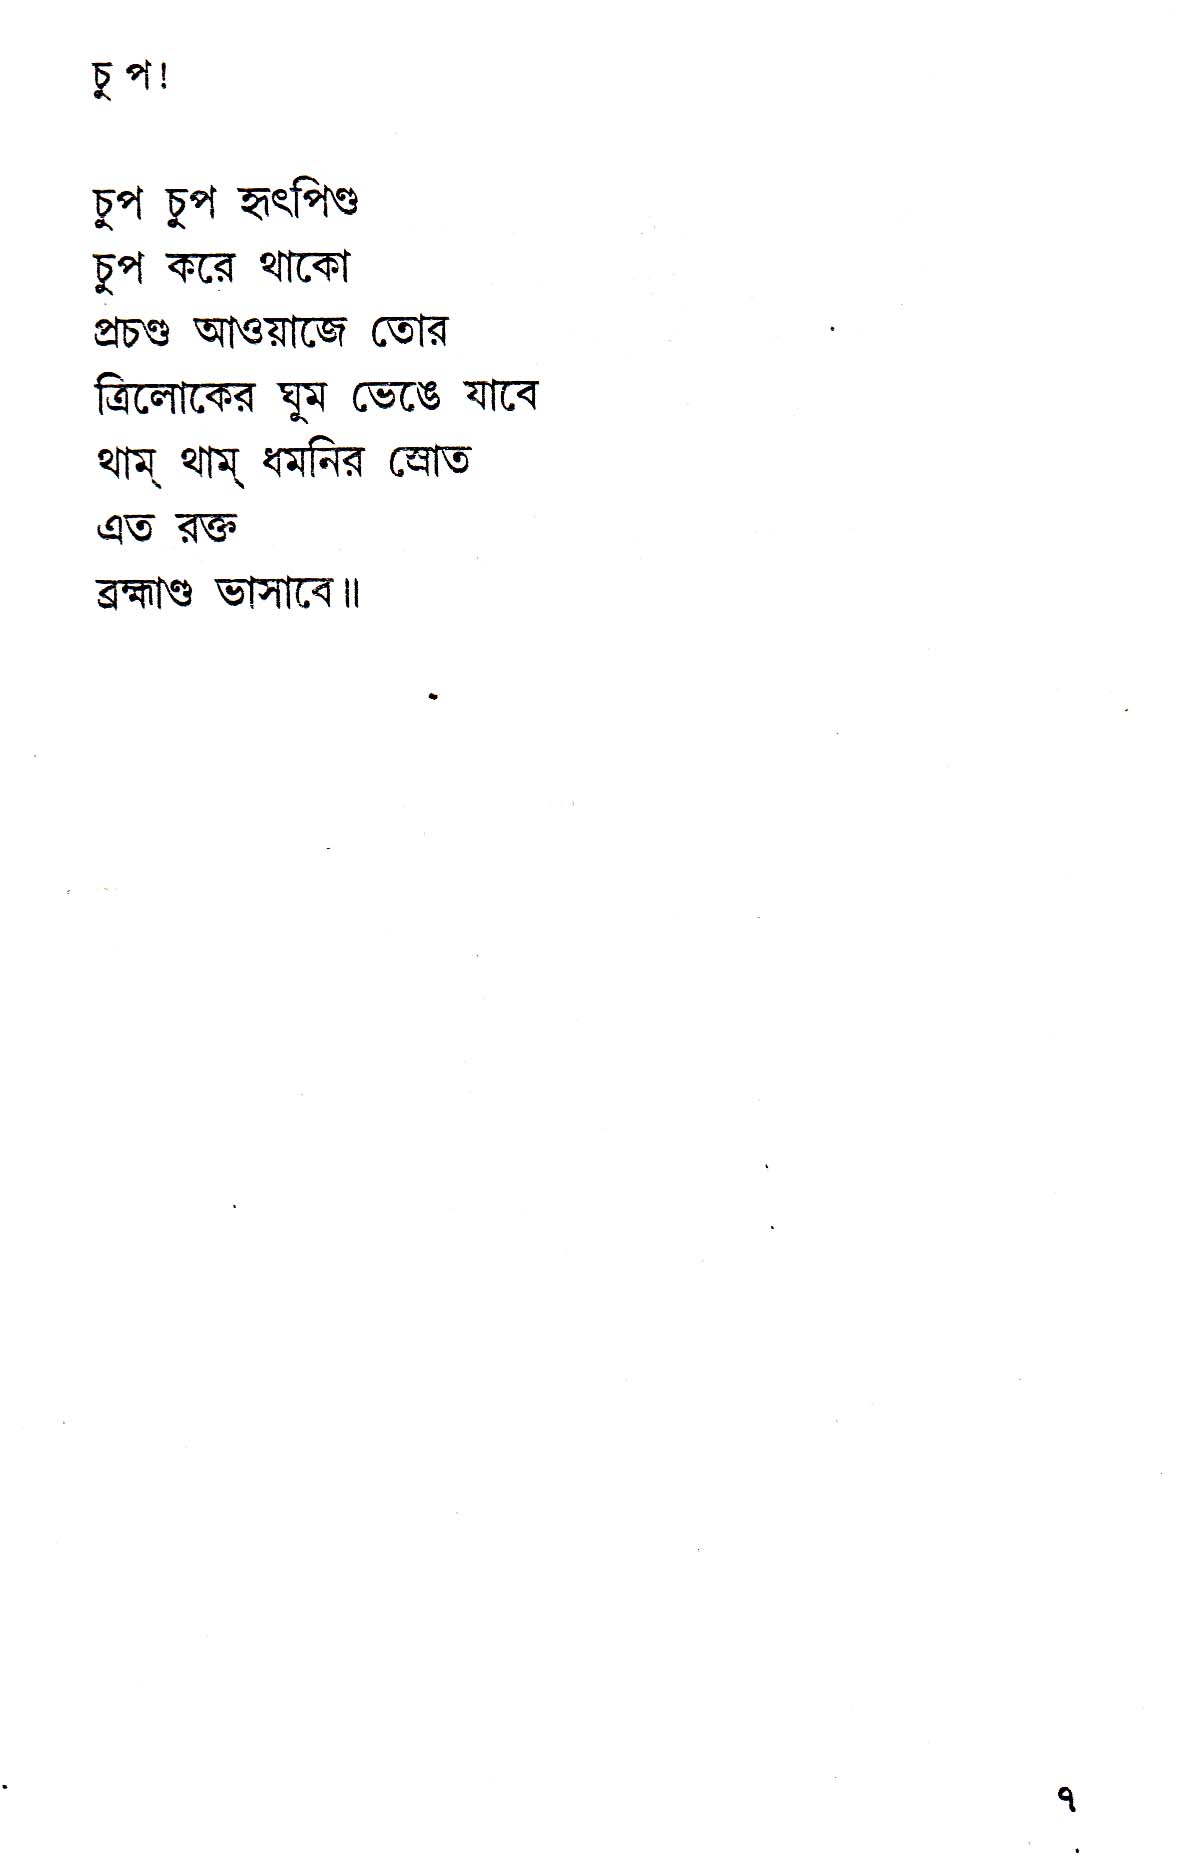 চুপ!
চুপ চুপ হৃৎপিণ্ড
চুপ করে থাকো
প্রচণ্ড আওয়াজে তোর
ত্রিলোকের ঘুম ভেঙে যাবে
থাম্ থাম্ ধমনির স্রোত
এত রক্ত
ব্রহ্মাণ্ড ভাসাবে॥
৭